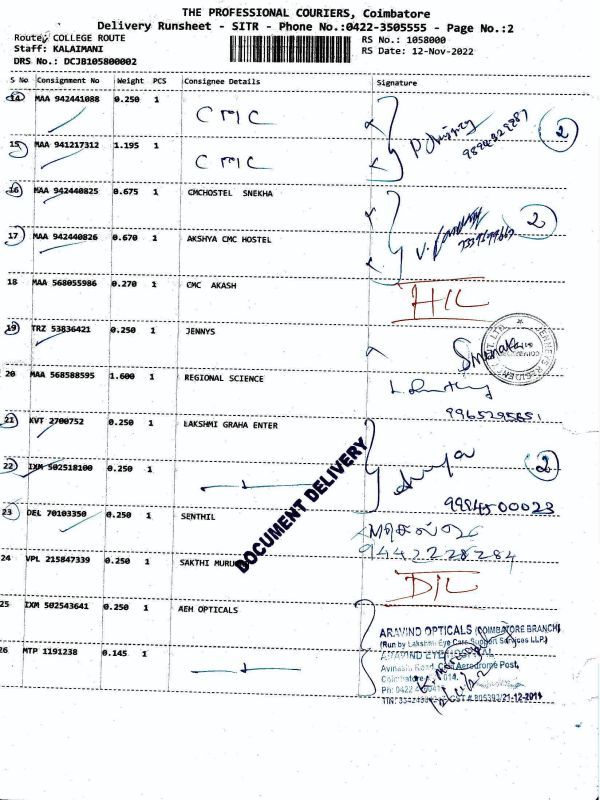 THE PROFESSIONAL COURIERS, Coimbatore
Delivery Runsheet - SITR - Phone No.:0422-3505555 - Page No.:2
Route: COLLEGE ROUTE RS No.: 1058000
Staff: KALAIMANI RS Date: 12-Nov-2022
DRS No.: DCJB105800002
S No Consignment No Weight PCS Consignee Details Signature
14 MAA 942441088 0.250 1 CMC
15 MAA 941217312 1.195 1 CMC 2
16 MAA 942440825 0.675 1 CMCHOSTEL SNEKHA
17 MAA 942440826 0.670 1 AKSHYA CMC HOSTEL 2
18 MAA 568055986 0.270 1 CMC AKASH
19 TRZ 53836421 0.250 1 JENNYS
20 MAA 568588595 1.600 1 REGIONAL SCIENCE
21 KVT 2700752 0.250 1 LAKSHMI GRAHA ENTER
22 IXM 502518100 0.250 1 2
9994500023
DOCUMENT DELIVERY
23 DEL 70103350 0.250 1 SENTHIL
9442228284
24 VPL 215847339 0.250 1 SAKTHI D/L
25 IXM 502543641 0.250 1 AEH OPTICALS
ARAVIND OPTICALS (COIMBATORE BRANCH)
(Run by Lakshmi Eye Care Support Services LLP)
ARAVIND EYE HOSPITAL
26 MTP 1191238 0.145 1
Avinashi Road, Aerodrome Post,
Coimbatore 014.
Ph: 0422
21-12-2011